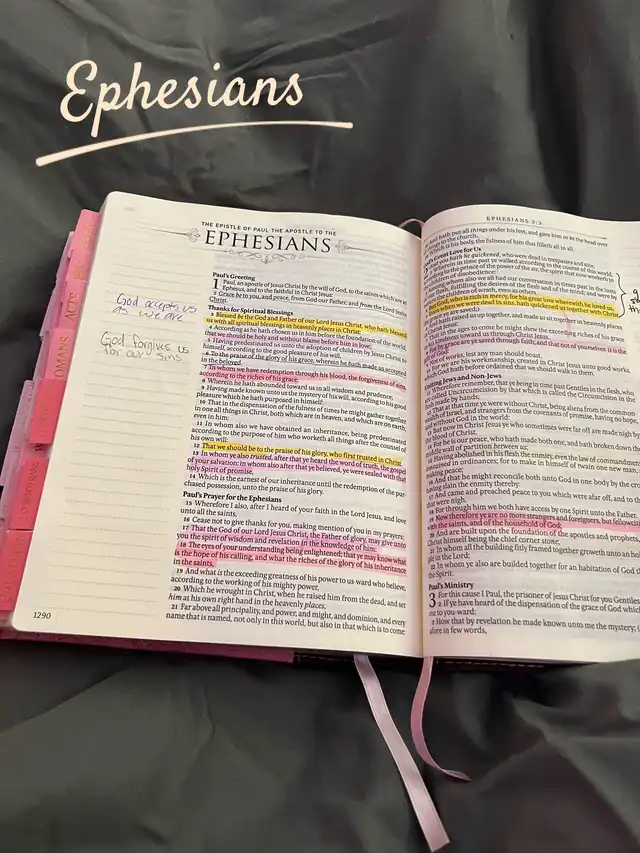 Ephesians
ACTS
ROMANS
God accepts us
as we are
God forgives us
for our sins
THE EPISTLE OF PAUL THE APOSTLE TO THE
EPHESIANS
Paul's Greeting
1 Paul, an apostle of Jesus Christ by the will of God, to the saints which are at
Ephesus, and to the faithful in Christ Jesus:
2 Grace be to you, and peace, from God our Father, and from the Lord Jesus
Christ.
Thanks for Spiritual Blessings
3 Blessed be the God and Father of our Lord Jesus Christ, who hath blessed
us with all spiritual blessings in heavenly places in Christ:
4 According as he hath chosen us in him before the foundation of the world,
that we should be holy and without blame before him in love:
5 Having predestinated us unto the adoption of children by Jesus Christ to
himself, according to the good pleasure of his will,
6 To the praise of the glory of his grace, wherein he hath made us accepted
in the beloved.
7 In whom we have redemption through his blood, the forgiveness of sins,
according to the riches of his grace;
8 Wherein he hath abounded toward us in all wisdom and prudence;
9 Having made known unto us the mystery of his will, according to his good
pleasure which he hath purposed in himself:
10 That in the dispensation of the fulness of times he might gather together
in one all things in Christ, both which are in heaven, and which are on earth;
even in him:
11 In whom also we have obtained an inheritance, being predestinated
according to the purpose of him who worketh all things after the counsel of
his own will:
12 That we should be to the praise of his glory, who first trusted in Christ.
13 In whom ye also trusted, after that ye heard the word of truth, the gospel
of your salvation: in whom also after that ye believed, ye were sealed with that
holy Spirit of promise,
14 Which is the earnest of our inheritance until the redemption of the pur-
chased possession, unto the praise of his glory.
Paul's Prayer for the Ephesians
15 Wherefore I also, after I heard of your faith in the Lord Jesus, and love
unto all the saints,
16 Cease not to give thanks for you, making mention of you in my prayers;
17 That the God of our Lord Jesus Christ, the Father of glory, may give unto
you the spirit of wisdom and revelation in the knowledge of him:
18 The eyes of your understanding being enlightened; that ye may know what
is the hope of his calling, and what the riches of the glory of his inheritance
in the saints,
19 And what is the exceeding greatness of his power to us-ward who believe,
according to the working of his mighty power,
20 Which he wrought in Christ, when he raised him from the dead, and set
him at his own right hand in the heavenly places,
21 Far above all principality, and power, and might, and dominion, and every
name that is named, not only in this world, but also in that which is to come:
1290
EPHESIANS 3:3
hath put all things under his feet, and gave him to be the head over
to the church,
is his body, the fulness of him that filleth all in all.
Great Love for Us
you hath he quickened, who were dead in trespasses and sins;
Wherein in time past ye walked according to the course of this world,
to the prince of the power of the air, the spirit that now worketh in
children of disobedience:
whom also we all had our conversation in times past in the lusts
flesh, fulfilling the desires of the flesh and of the mind; and were by
children of wrath, even as others.
God, who is rich in mercy, for his great love wherewith he loved us,
when we were dead in sins, hath quickened us together with Christ,
grace ye are saved;)
hath raised us up together, and made us sit together in heavenly places
Christ Jesus:
That in the ages to come he might shew the exceeding riches of his grace
kindness toward us through Christ Jesus.
For by grace are ye saved through faith; and that not of yourselves: it is the
of God:
of works, lest any man should boast.
we are his workmanship, created in Christ Jesus unto good works,
God hath before ordained that we should walk in them.
Jews and Non-Jews
Wherefore remember, that ye being in time past Gentiles in the flesh, who
called Uncircumcision by that which is called the Circumcision in the
flesh made by hands;
That at that time ye were without Christ, being aliens from the common-
of Israel, and strangers from the covenants of promise, having no hope,
without God in the world:
But now in Christ Jesus ye who sometimes were far off are made nigh by
the blood of Christ.
For he is our peace, who hath made both one, and hath broken down the
middle wall of partition between us;
Having abolished in his flesh the enmity, even the law of command
contained in ordinances; for to make in himself of twain one new man,
making peace;
And that he might reconcile both unto God in one body by the cro
having slain the enmity thereby:
And came and preached peace to you which were afar off, and to th
that were nigh.
For through him we both have access by one Spirit unto the Father.
19 Now therefore ye are no more strangers and foreigners, but fellow
with the saints, and of the household of God;
20 And are built upon the foundation of the apostles and prophets,
Christ himself being the chief corner stone;
21 In whom all the building fitly framed together groweth unto an ho
ple in the Lord:
22 In whom ye also are builded together for an habitation of God th
the Spirit.
Paul's Ministry
3 For this cause I Paul, the prisoner of Jesus Christ for you Gentiles
2 If ye have heard of the dispensation of the grace of God which
me to you-ward:
3 How that by revelation he made known unto me the mystery; (
afore in few words,